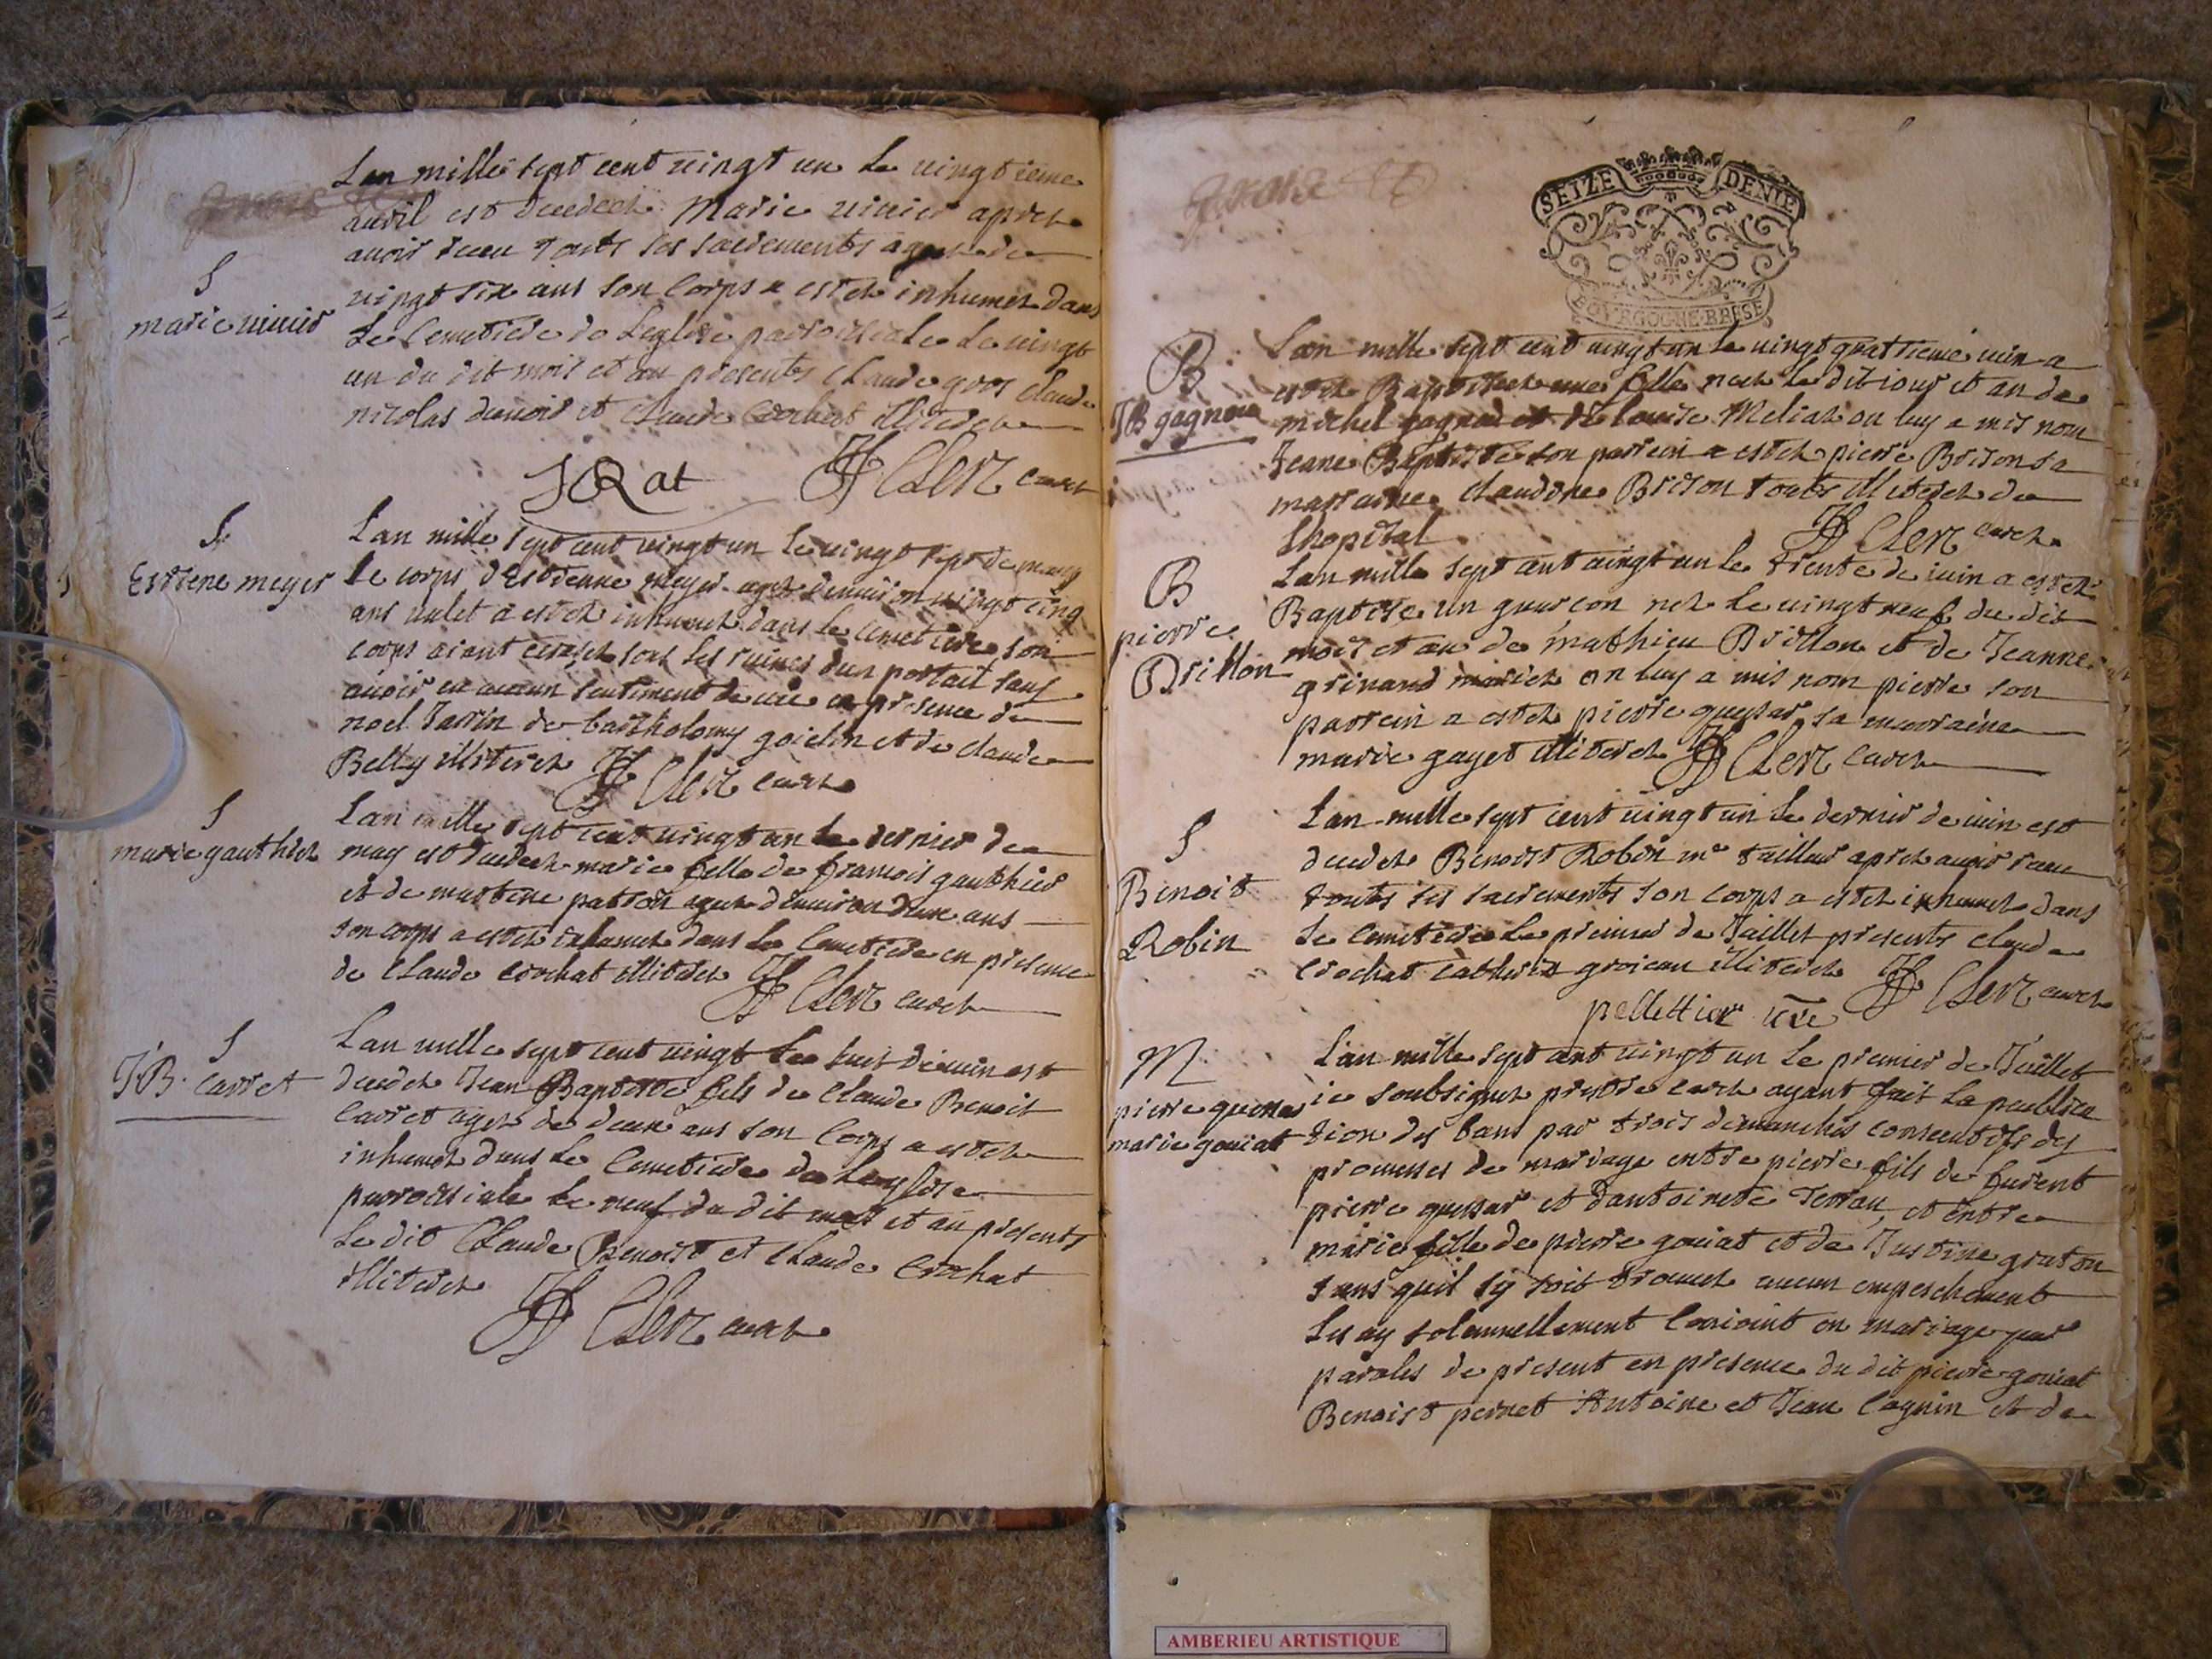 Lan mille sept cent vingt un le vingtieme
avril est decedeé Marie
avoir receu touts ses sacrements ageé de
vingt six ans son corps a esté inhumé dans
S
marie
le Cemetiere de Leglise parroissiale le vingt
un du dit mois et an presents Claude gros Claude
nicolas et Claude illiteré
J Rat Clerc curé
S
Estiene meyer
Lan mille sept cent vingt un le vingt sept de may
le corps d'Estienne meyer agé denviron vingt cinq
ans valet a esté inhumé dans le cemetiere son
corps aiant ecrasé sous les ruines dun portail sans
avoir eu aucun sentiment de vie en presence de
noel Jarrin de bartholomy et de claude
Belty illiteré Clerc curé
S
marie gauthier
Lan mille sept cent vingt un le dernier de
may est decedeé marie fille de francois gauthier
et de patron ageé denviron deux ans
son corps a esté inhumé dans le Cemetiere en presence
de Claude Crochat illiteré Clerc curé
S
J.B. Carret
Lan mille sept cent vingt le huit de iuin est
decedé Jean Baptiste fils de Claude Benoit
Carret agé de deux ans son Corps a esté
inhumé dans le Cemetiere de Leglise
parroissiale le neuf du dit mois et an presents
le dit Claude Benoist et Claude Crochat
illiteré
Clerc curé
SEIZE DENIE
BOVRGOGNE BRESSE
B
JB gagneu
Lan mille sept cent vingt un le vingt quatrieme iuin a
esté Baptiseé une fille neé le dit iour et an de
michel et de louise Meliat on luy a mis nom
Jeane Baptiste son parrein a esté pierre Brison sa
marraine claudine Brison touts illiteré de
lhopital Clerc curé
B
pierre
Brillon
Lan mille sept cent vingt un le trente de iuin a esté
Baptise un guarcon né le vingt neuf du dit
mois et an de mathieu Brillon et de Jeanne
grinand mariés on luy a mis nom pierre son
parrein a esté pierre quessar sa marraine
marie gayet illiteré Clerc curé
S
Benoit
Robin
Lan mille sept cent vingt un le dernier de iuin est
decedé Benoist Robin me tailleur apré avoir receu
touts ses sacrements son corps a esté inhumé dans
le Cemetiere le premier de Juillet presents claude
Crochat illiteré Clerc curé
pellettier
M
pierre quessar
marie gouiat
Lan mille sept cent vingt un le premier de Juillet
ie soubsigné prestre curé ayant fait la publica
tion des bans par trois dimanches consecutifs des
promesses de mariage entre pierre fils de furent
pierre quessar et dantoinete Terrau, et entre
marie fille de pierre gouiat et de Justine graton
sans quil sy soit trouvé aucun empeschement
les ay solennellement Conioint en mariage par
paroles de present en presence du dit pierre gouiat
Benoist pernet Antoine et Jean Cagnin et de
AMBERIEU ARTISTIQUE